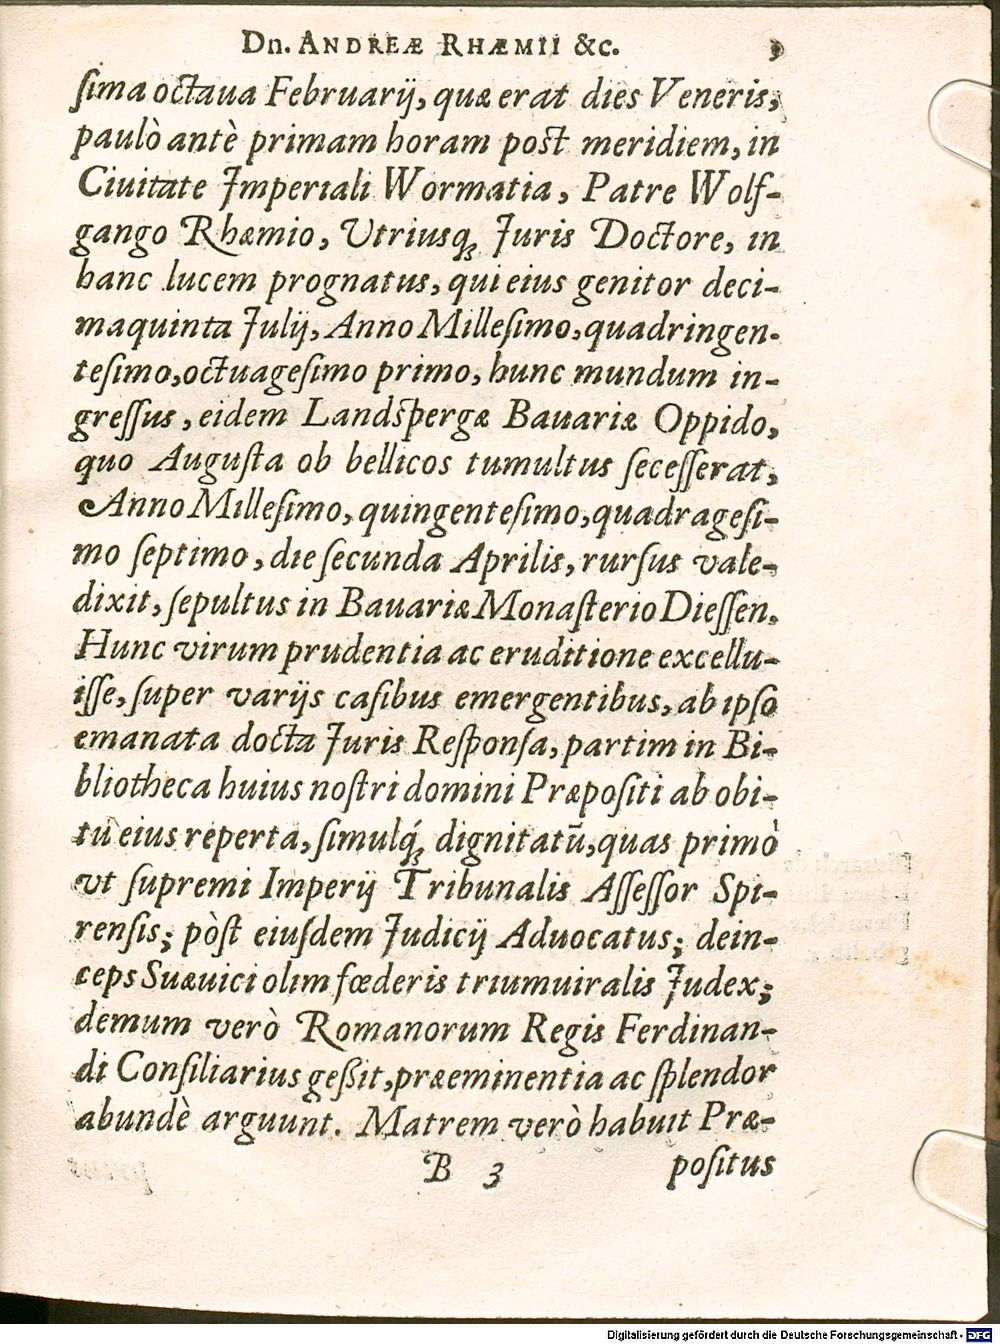 Dn. ANDREÆ RHÆMII &c. 9
ſima octaua Februarij, quæ erat dies Veneris,
paulò antè primam horam post meridiem, in
Ciuitate Imperiali Wormatia, Patre Wolf-
gango Rhæmio, Vtriusq́; Juris Doctore, in
hanc lucem prognatus, qui eius genitor deci-
maquinta Julij, Anno Milleſimo, quadringen-
teſimo, octuageſimo primo, hunc mundum in-
greſſus, eidem Landſpergæ Bauariæ Oppido,
quo Auguſta ob bellicos tumultus ſeceſſerat,
Anno Milleſimo, quingenteſimo, quadrageſi-
mo ſeptimo, die ſecunda Aprilis, rurſus vale-
dixit, ſepultus in Bauariæ Monaſterio Dieſſen.
Hunc virum prudentia ac eruditione excellu-
iſſe, ſuper varijs caſibus emergentibus, ab ipſo
emanata docta Juris Reſponſa, partim in Bi-
bliotheca huius noſtri domini Præpoſiti ab obi-
tu eius reperta, ſimulq́; dignitatũ, quas primò
vt ſupremi Imperij Tribunalis Aſſeſſor Spi-
renſis; pòſt eiuſdem Judicij Aduocatus; dein-
ceps Suæuici olim fœderis triumuiralis Judex;
demum verò Romanorum Regis Ferdinan-
di Conſiliarius geßit, præeminentia ac ſplendor
abundè arguunt. Matrem verò habuit Præ-
B 3 poſitus
Digitalisierung gefördert durch die Deutsche Forschungsgemeinschaft - DFG